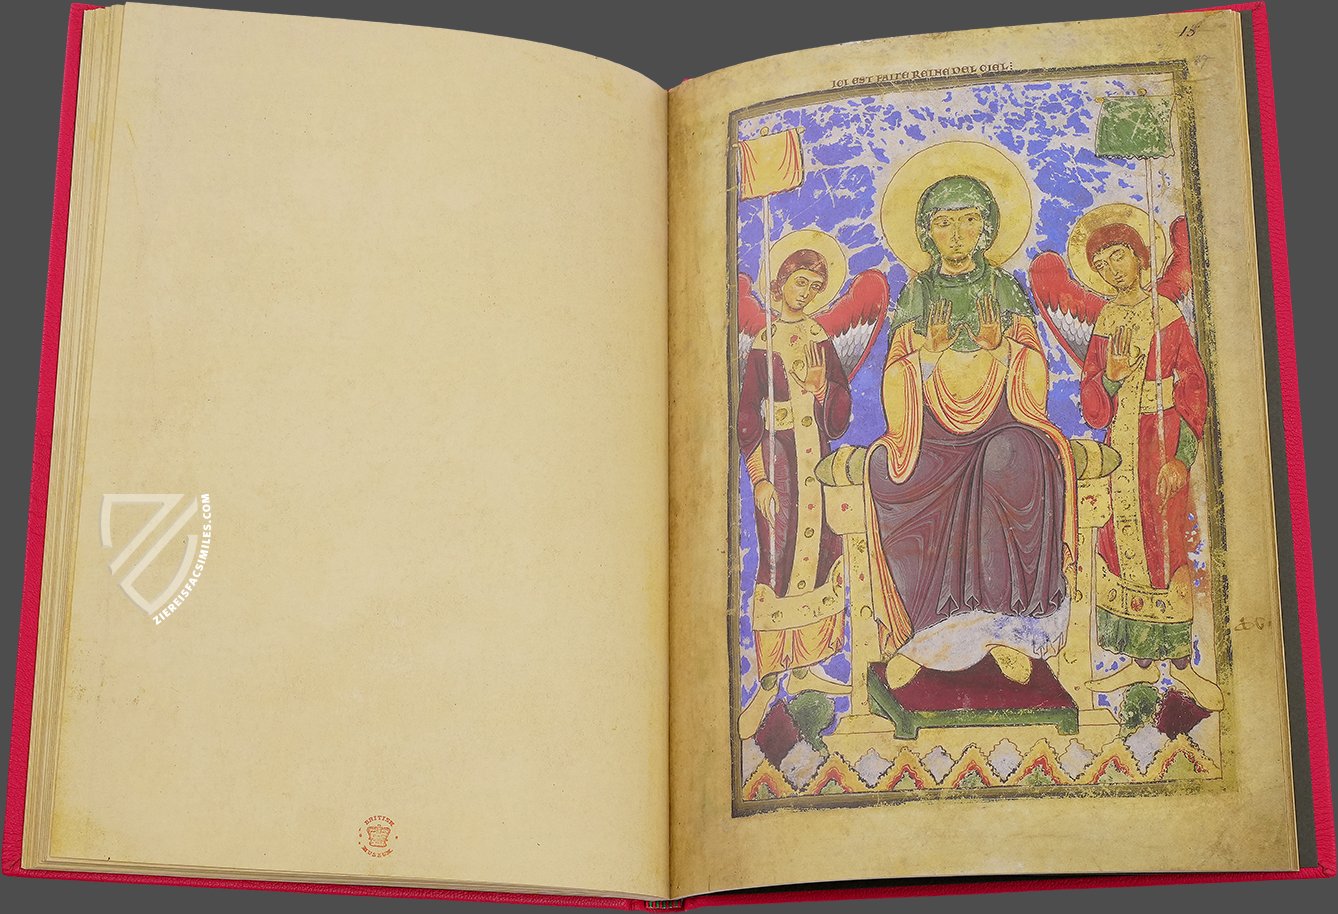 ZIEREISFACSIMILES.COM
BRITISH
MUSEUM
ICI EST FAITE REINE DEL CIEL:
15